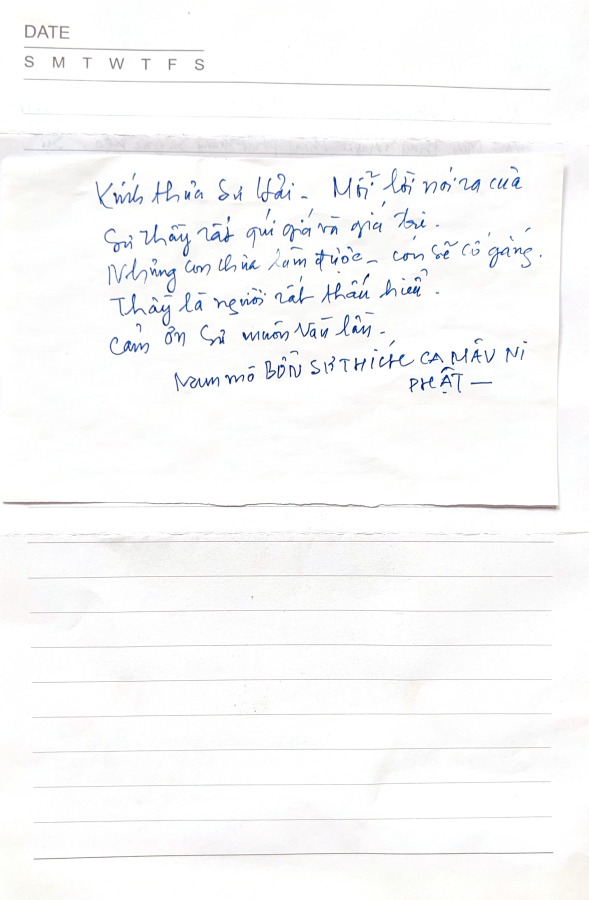 DATE
S M T W T F S
Kính thưa Sư Hải - Mỗi lời nói ra của
Sư thầy rất quí giá và giá trị.
Nhưng con chưa làm được - con sẽ cố gắng.
Thầy là người rất thấu hiểu.
cảm ơn Sư muôn vàn lần -
Nam mô BỔN SƯ THÍCH CA MÂU NI
PHẬT —